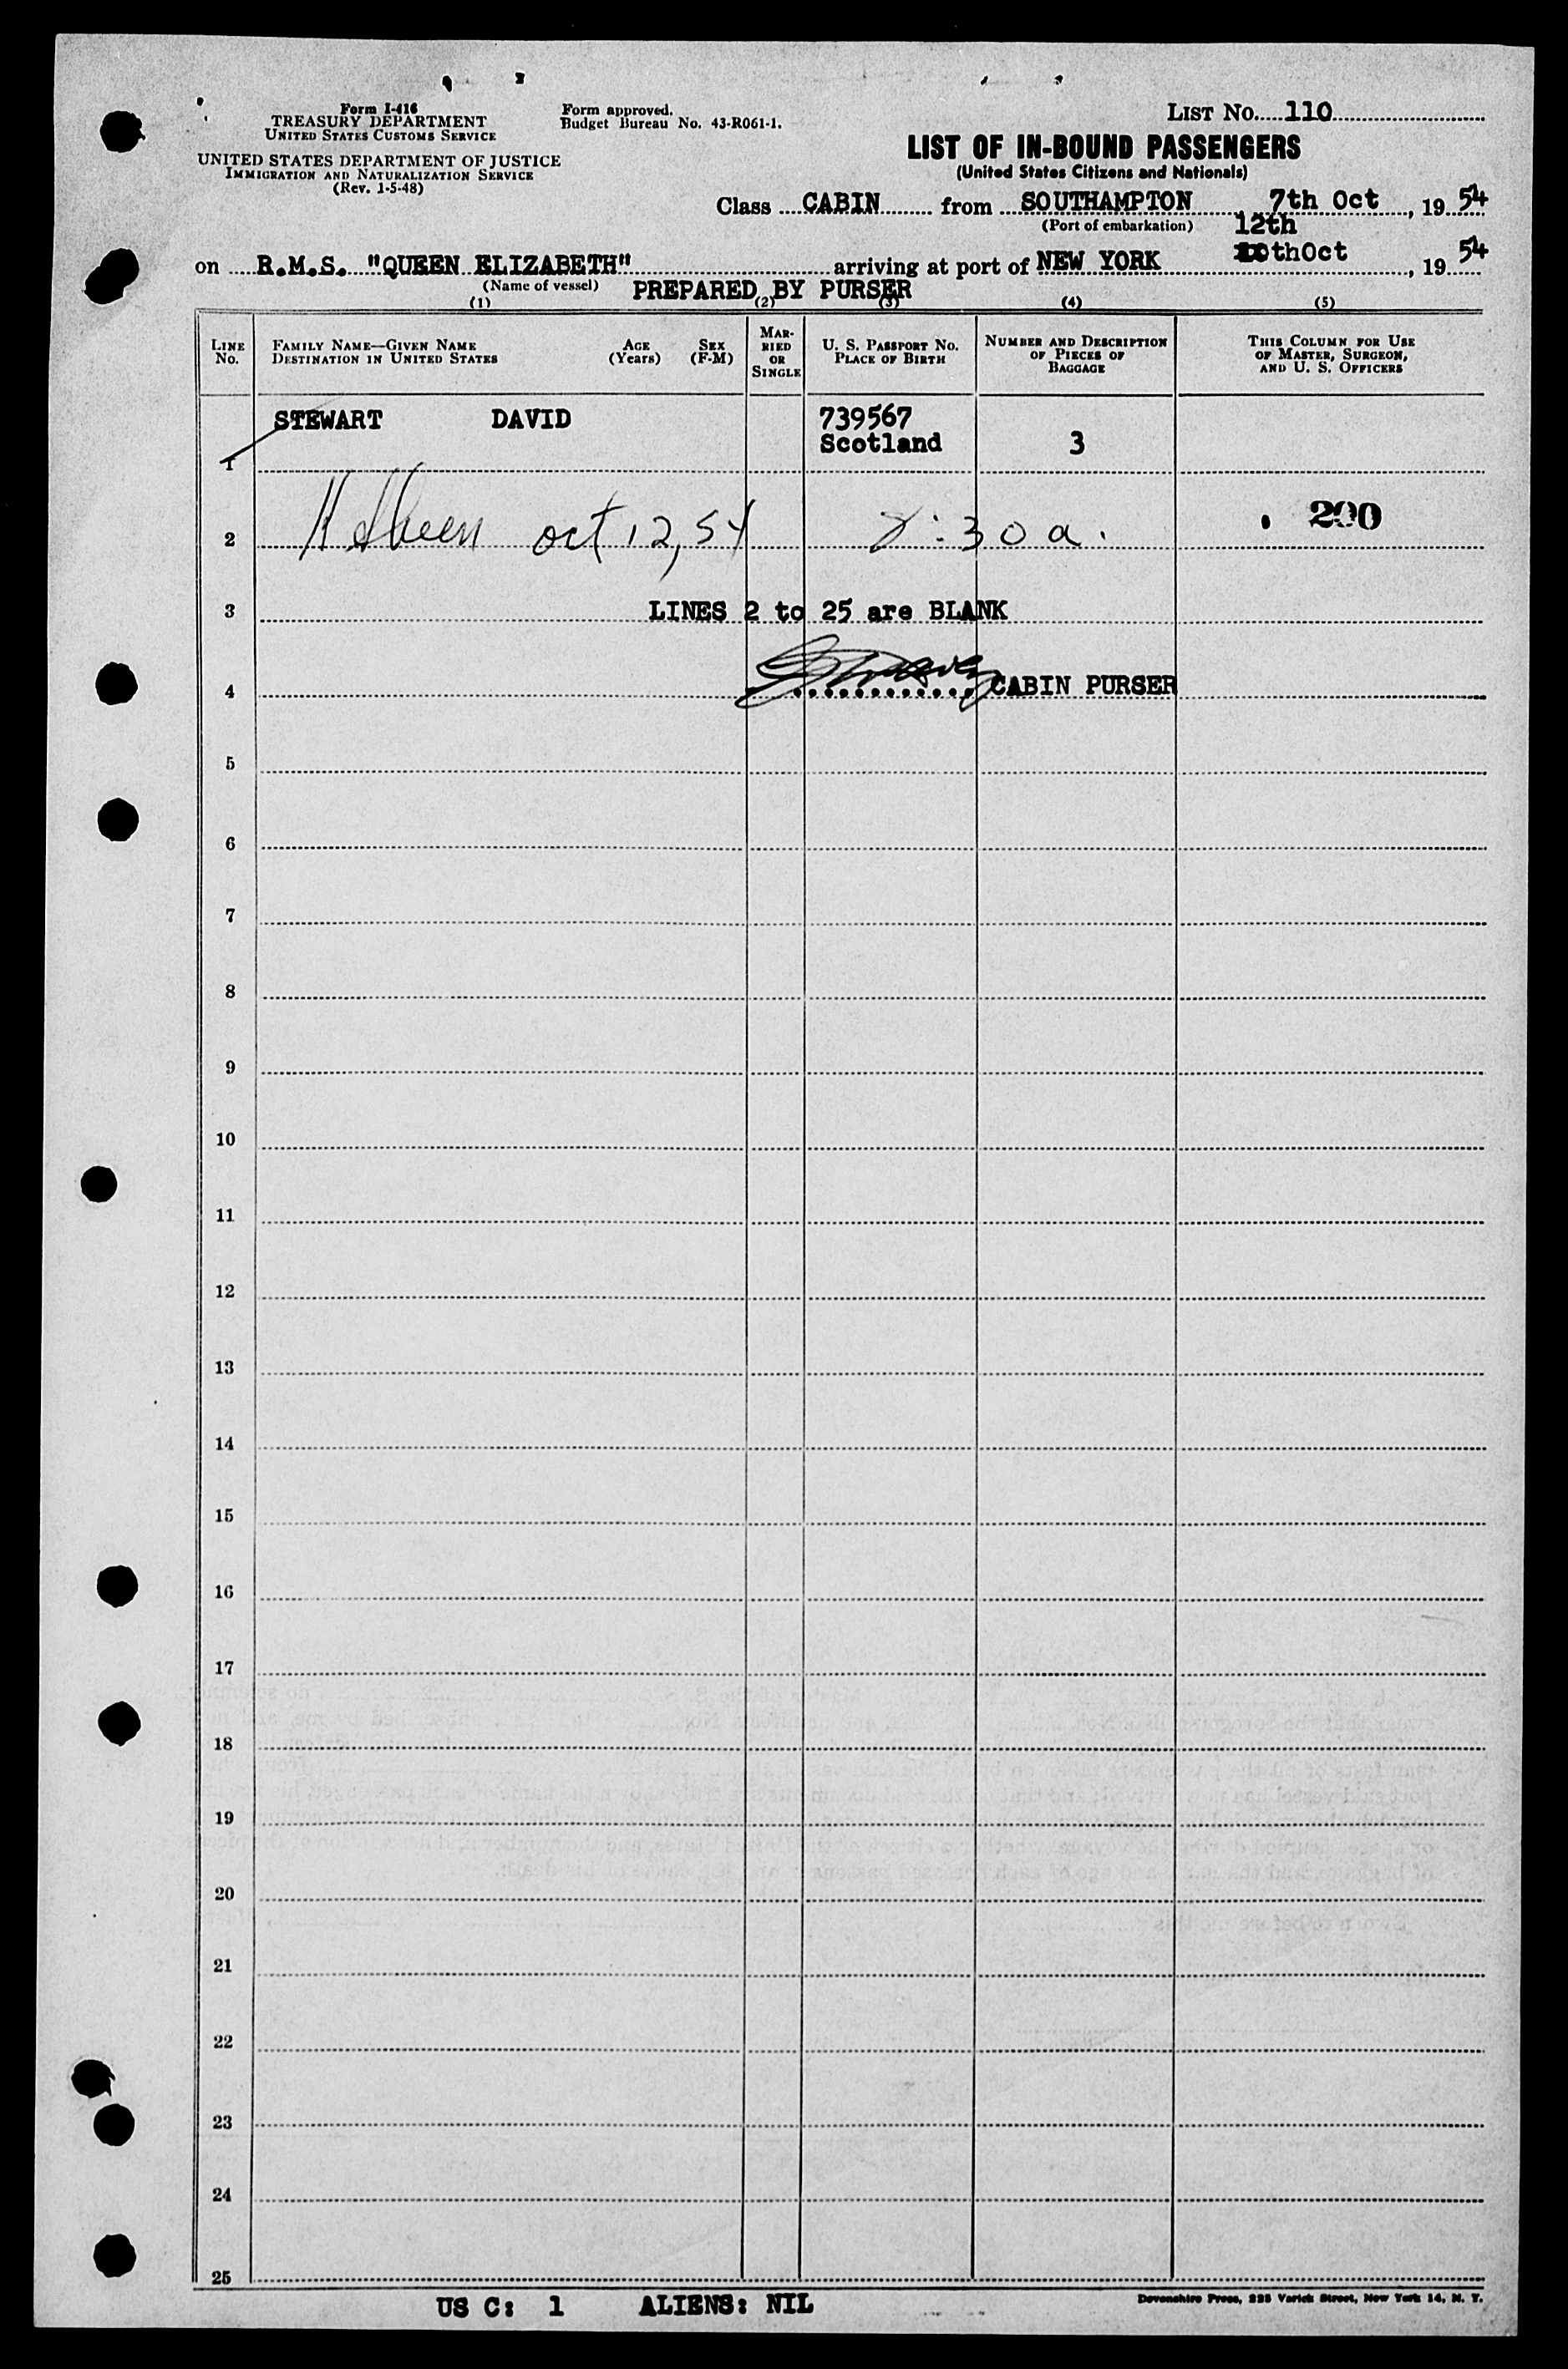 Form I-416
TREASURY DEPARTMENT
UNITED STATES CUSTOMS SERVICE
UNITED STATES DEPARTMENT OF JUSTICE
IMMIGRATION AND NATURALIZATION SERVICE
(Rev. 1-5-48)
Form approved.
Budget Bureau No. 43-R061-1.
LIST NO. 110
LIST OF IN-BOUND PASSENGERS
(United States Citizens and Nationals)
Class CABIN from SOUTHAMPTON 7th Oct, 19 54
(Port of embarkation) 12th
on R.M.S. "QUEEN ELIZABETH" arriving at port of NEW YORK thOct, 19 54
(Name of vessel) PREPARED BY PURSER
(1) (2) (3) (4) (5)
LINE NO.
FAMILY NAME—GIVEN NAME
DESTINATION IN UNITED STATES
AGE (Years)
SEX (F-M)
MARRIED OR SINGLE
U. S. PASSPORT NO.
PLACE OF BIRTH
NUMBER AND DESCRIPTION OF PIECES OF BAGGAGE
THIS COLUMN FOR USE OF MASTER, SURGEON, AND U. S. OFFICERS
STEWART DAVID 739567
1 Scotland 3
2 oct 12, 54 8:30 a. 200
3 LINES 2 to 25 are BLANK
4 CABIN PURSER
5
6
7
8
9
10
11
12
13
14
15
16
17
18
19
20
21
22
23
24
25
US C: 1 ALIENS: NIL
Devonshire Press, 225 Varick Street, New York 14, N. Y.